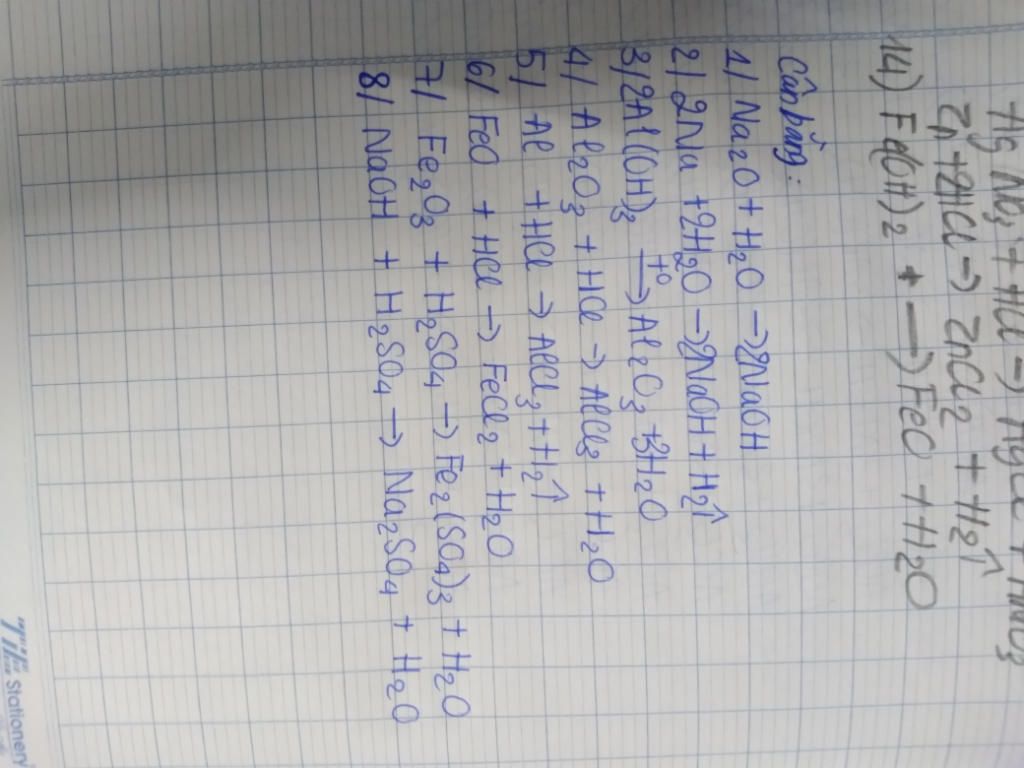 AgNO3 + HCl → AgCl + HNO3
Zn + 2HCl → ZnCl2 + H2↑
14) Fe(OH)2 + → FeO + H2O
Cân bằng:
1/ Na2O + H2O → 2NaOH
2/ 2Na + 2H2O → 2NaOH + H2↑
3/ 2Al(OH)3 t° → Al2O3 + 3H2O
4/ Al2O3 + HCl → AlCl3 + H2O
5/ Al + HCl → AlCl3 + H2↑
6/ FeO + HCl → FeCl2 + H2O
7/ Fe2O3 + H2SO4 → Fe2(SO4)3 + H2O
8/ NaOH + H2SO4 → Na2SO4 + H2O
Stationery